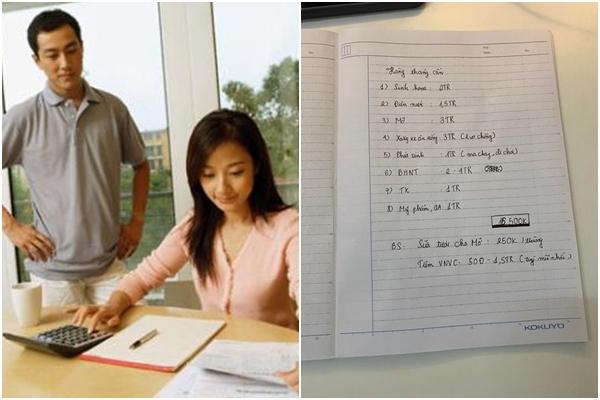 Hàng tháng cần
1) Sinh hoạt : 2TR
2) Điện nước : 1,5TR
3) Mỡ : 3TR
4) Xăng xe ăn uống 3TR (2 vợ chồng)
5) Phát sinh : 1TR (ma chay, đi chơi)
6) BHNT : 2 - 4TR
7) TK : 1TR
8) Mỹ phẩm, QA 1TR
15 500K
BS: Sữa tươi cho Mỡ : 250K / tháng
Tiêm VNVC : 500 - 1,5TR (tuỳ mũi nhé)
KOKUYO